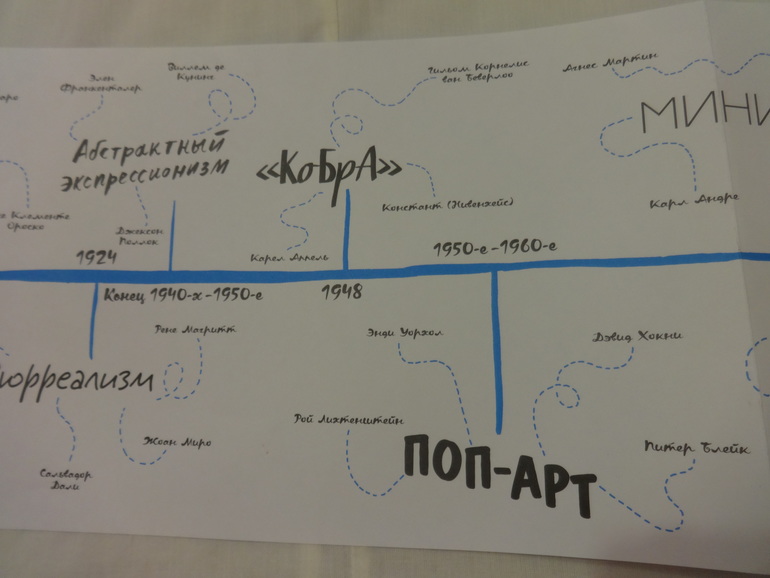 Элен
Франкенталер
Виллем де
Кунинг
Гильом Корнелис
ван Беверлоо
Агнес Мартин
Абстрактный
экспрессионизм
«КоБрА»
МИНИ
аро
е Клементе
Ороско
Джексон
Поллок
Карел Аппель
Константт (Нивенхейс)
Карл Андре
1924
1950-е-1960-е
Конец 1940-х-1950-е
1948
Рене Магритт
Энди Уорхол
Дэвид Хокни
юрреализм
Жоан Миро
Рой Лихтенштейн
ПОП-АРТ
Питер Блейк
Сальвадор
Дали